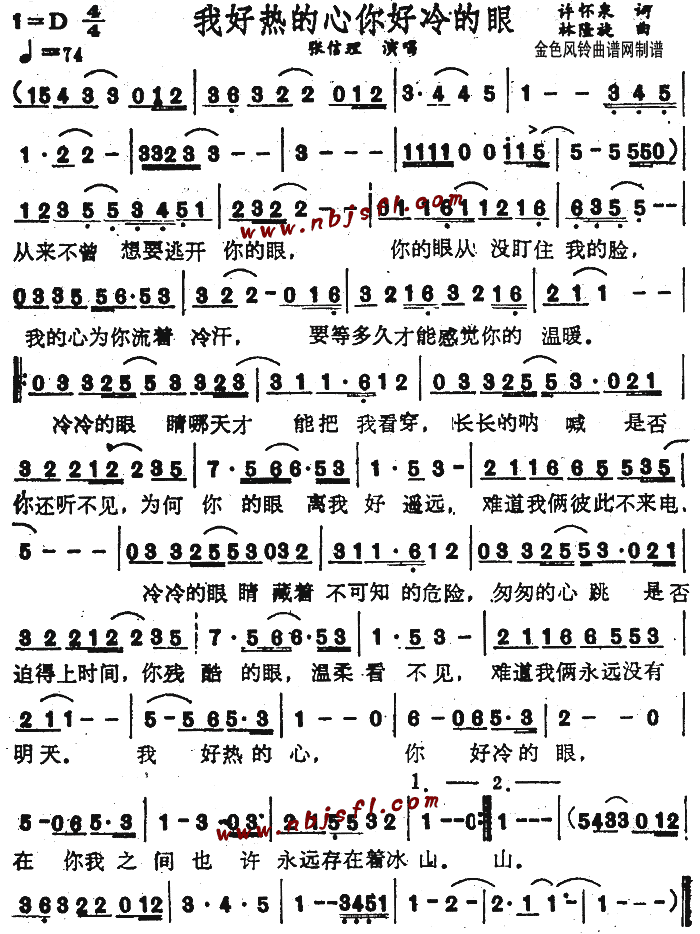 1=D 4/4 我好热的心你好冷的眼 许怀泉 词
♩=74 张信理 演唱 林隆旋 曲
金色风铃曲谱网制谱
(15433 012 | 36322 012 | 3·445 | 1-- 345 |
1·22- | 33233-- | 3--- | 111100 i15 | 5-5 550) |
123553451 | 23 22-- | 01161 11216 | 6355-- |
www.nbjsfl.com
从来不曾 想要逃开 你的眼, 你的眼从 没盯住 我的脸,
033556·53 | 322-016 | 3216 3216 | 211-- |
我的心为你流着 冷汗, 要等多久才能感觉你的 温暖。
03325533233 | 311·612 | 0332553·021 |
冷冷的眼 睛哪天才 能把 我看穿, 长长的呐 喊 是否
32212235 | 7·566·53 | 1·53- | 211665535 |
你还听不见,为何 你 的眼 离我 好 遥远, 难道我俩彼此不来电,
5--- | 03325530 32 | 311·612 | 0332553·021 |
冷冷的眼 睛 藏着 不可知 的危险, 匆匆的心 跳 是否
32212235 | 7·566·53 | 1·53- | 211665553 |
迫得上时间,你残 酷 的眼,温柔 看 不见, 难道我俩永远没有
211-- | 5-565·3 | 1--0 | 6-065·3 | 2--0 |
明天。 我 好热的 心, 你 好冷的 眼,
1. 2.
5-065·3 | 1-3-03· | 2·25532 | 1--0 :| 1-- | (5433012 |
www.nbjsfl.com
在 你我 之 间也 许 永远存在着冰 山。 山。
36322012 | 3·4·5 | 1--3451 | 1-2- | 2·11·1 | 1---) ||